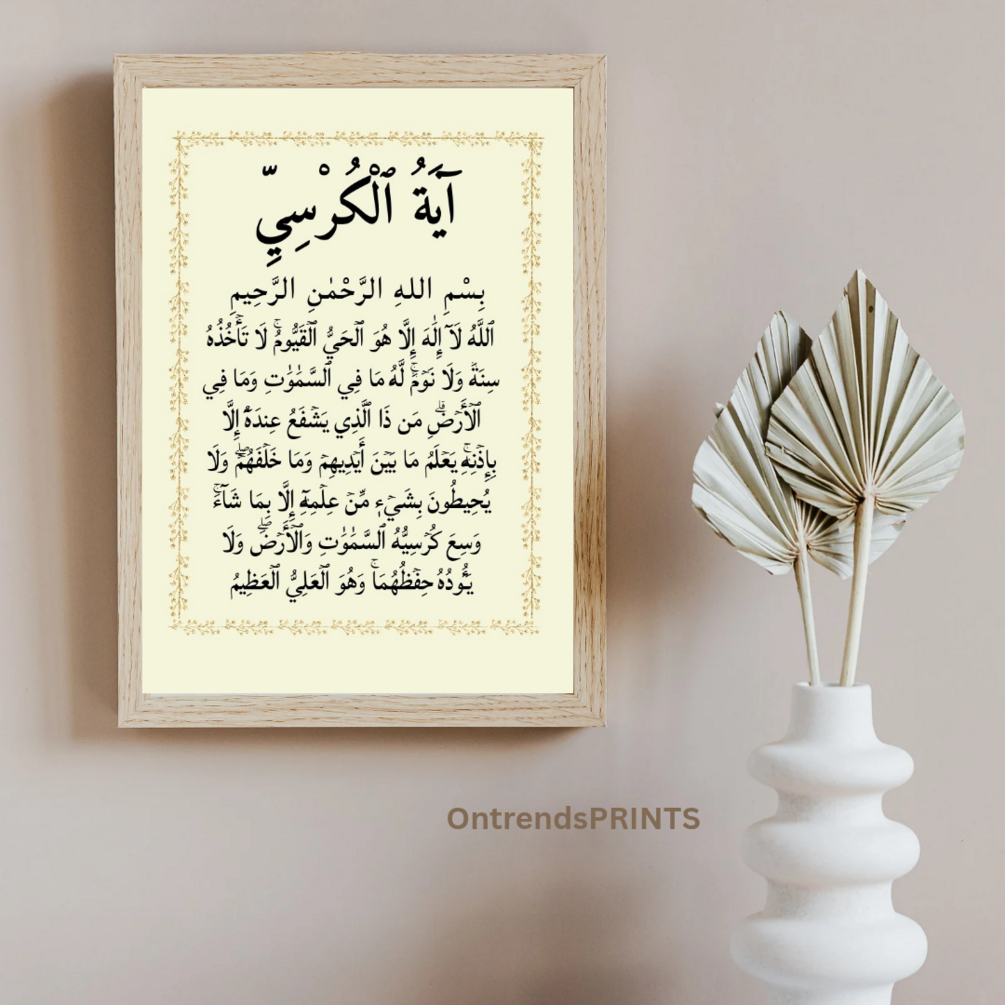 آيَةُ ٱلْكُرْسِيِّ
بِسْمِ اللهِ الرَّحْمٰنِ الرَّحِيمِ
ٱللَّهُ لَآ إِلَٰهَ إِلَّا هُوَ ٱلْحَيُّ ٱلْقَيُّومُ ۚ لَا تَأْخُذُهُ
سِنَةٌ وَلَا نَوْمٌ ۚ لَّهُ مَا فِي ٱلسَّمَٰوَٰتِ وَمَا فِي
ٱلْأَرْضِ ۗ مَن ذَا ٱلَّذِي يَشْفَعُ عِندَهُ إِلَّا
بِإِذْنِهِ ۚ يَعْلَمُ مَا بَيْنَ أَيْدِيهِمْ وَمَا خَلْفَهُمْ ۖ وَلَا
يُحِيطُونَ بِشَيْءٍ مِّنْ عِلْمِهِ إِلَّا بِمَا شَآءَ ۚ
وَسِعَ كُرْسِيُّهُ ٱلسَّمَٰوَٰتِ وَٱلْأَرْضَ ۖ وَلَا
يَـُٔودُهُ حِفْظُهُمَا ۚ وَهُوَ ٱلْعَلِيُّ ٱلْعَظِيمُ
OntrendsPRINTS